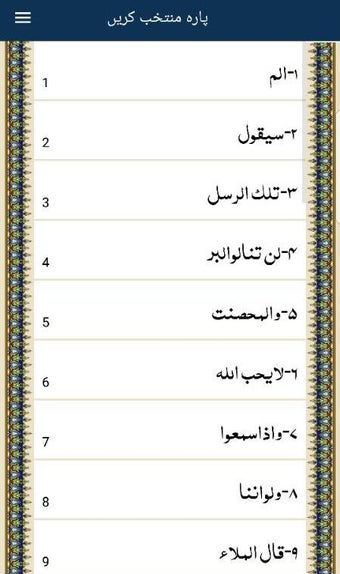 پارہ منتخب کریں
۱-الم
1
۲-سیقول
2
۳-تلك الرسل
3
۴-لن تنالوالبر
4
۵-والمحصنت
5
۶-لایحب الله
6
۷-واذاسمعوا
7
۸-ولواننا
8
۹-قال الملاء
9